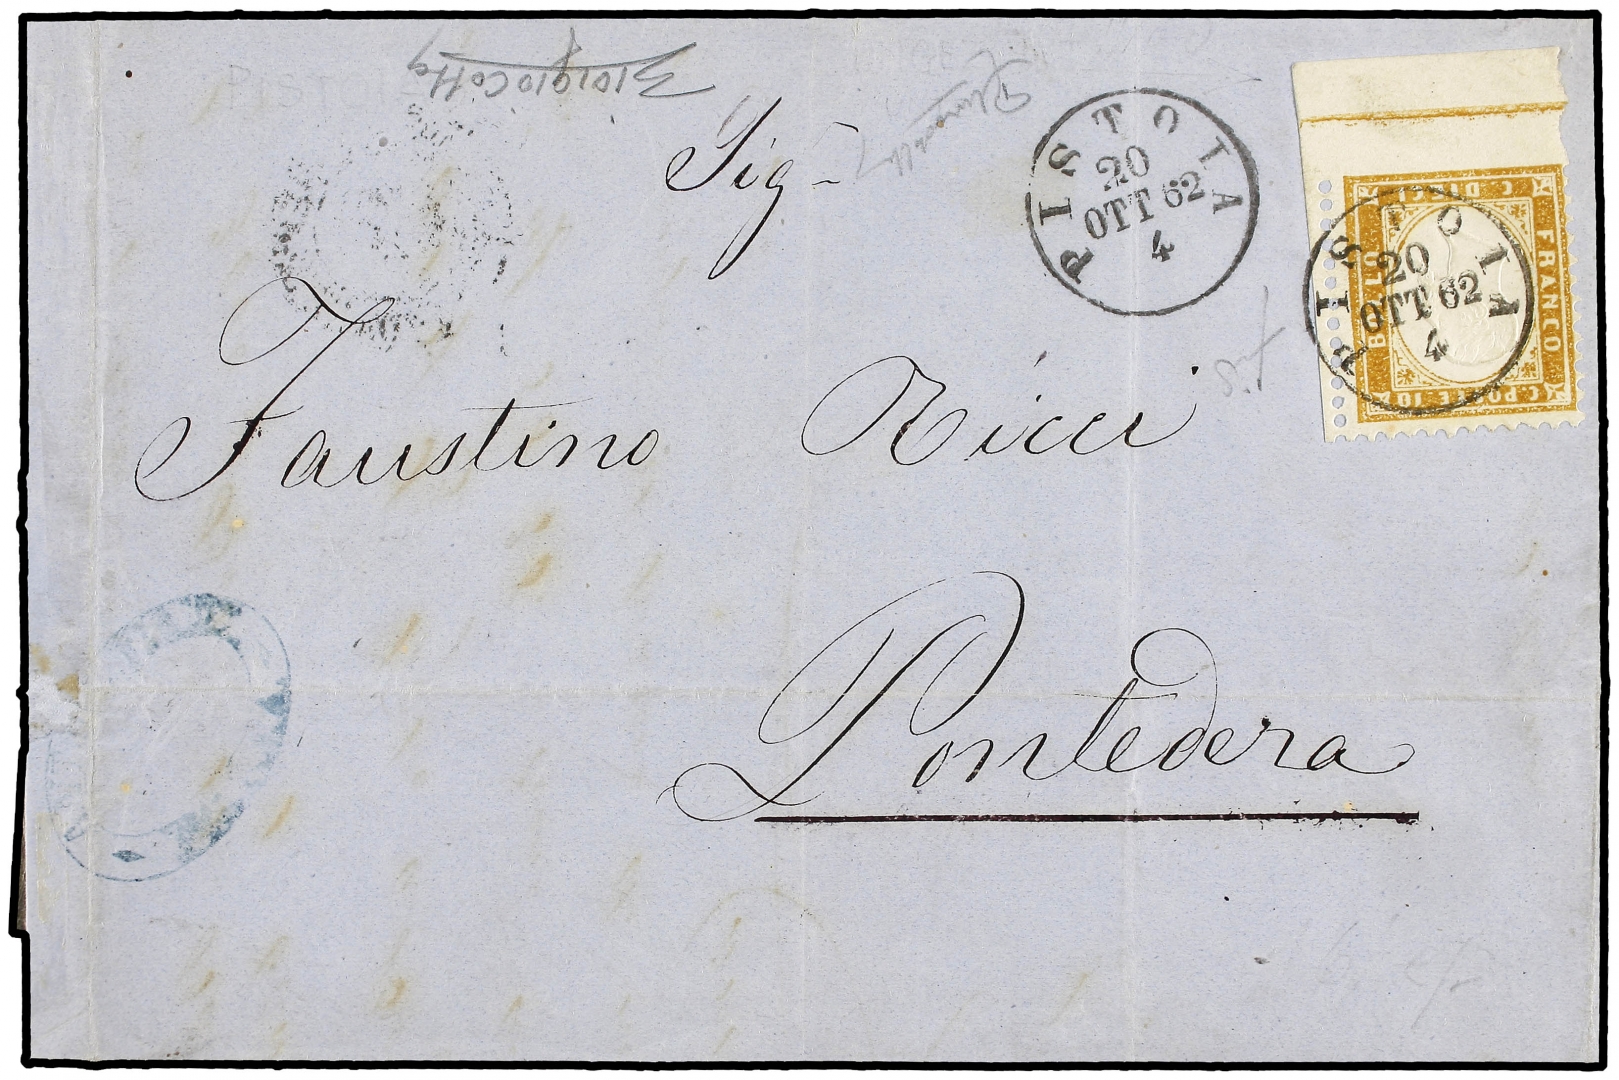 Sig
PISTOIA
20
OTT 62
4
PISTOIA
20
OTT 62
4
FRANCO
C. POSTE 10
BOLLO
C. DIECI
Faustino Ricci
Pontedera